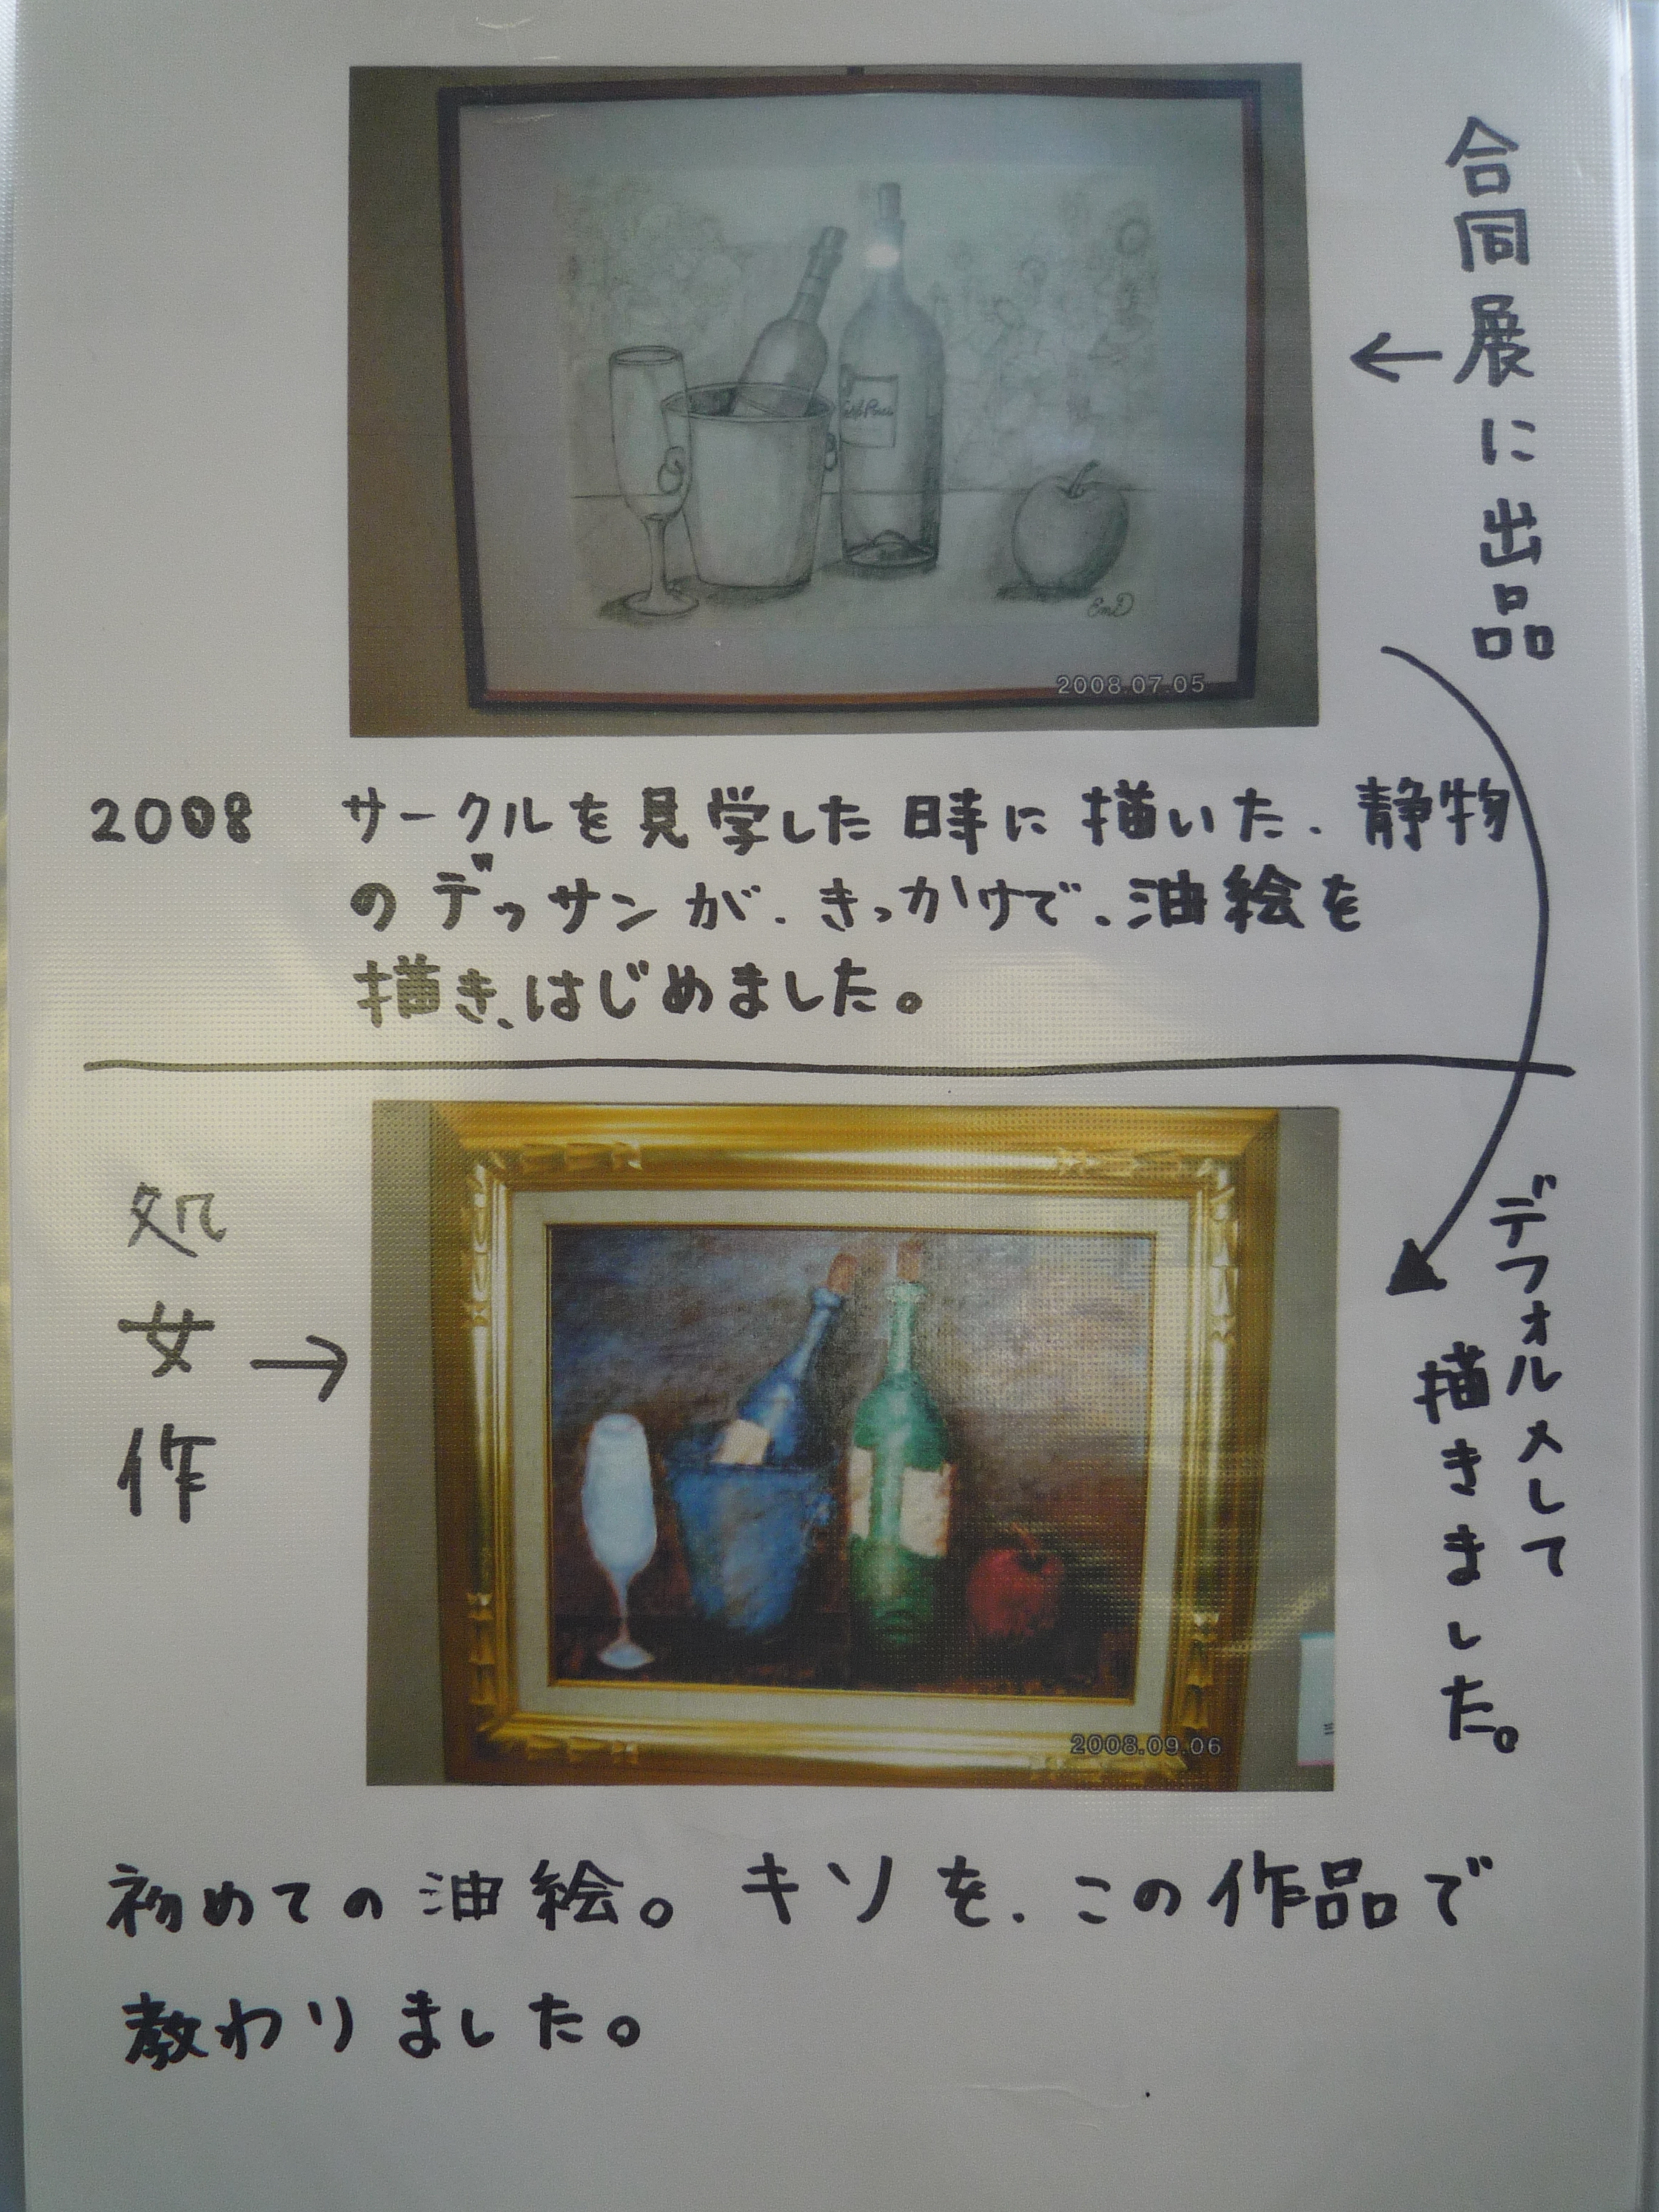 合同展に出品
←
2008.07.05
2008 サークルを見学した時に描いた.静物
のデッサンが.きっかけで.油絵を
描き、はじめました。
デフォルメして
描きました。
処女作
→
2008.09.06
初めての油絵。キソを.この作品で
教わりました。